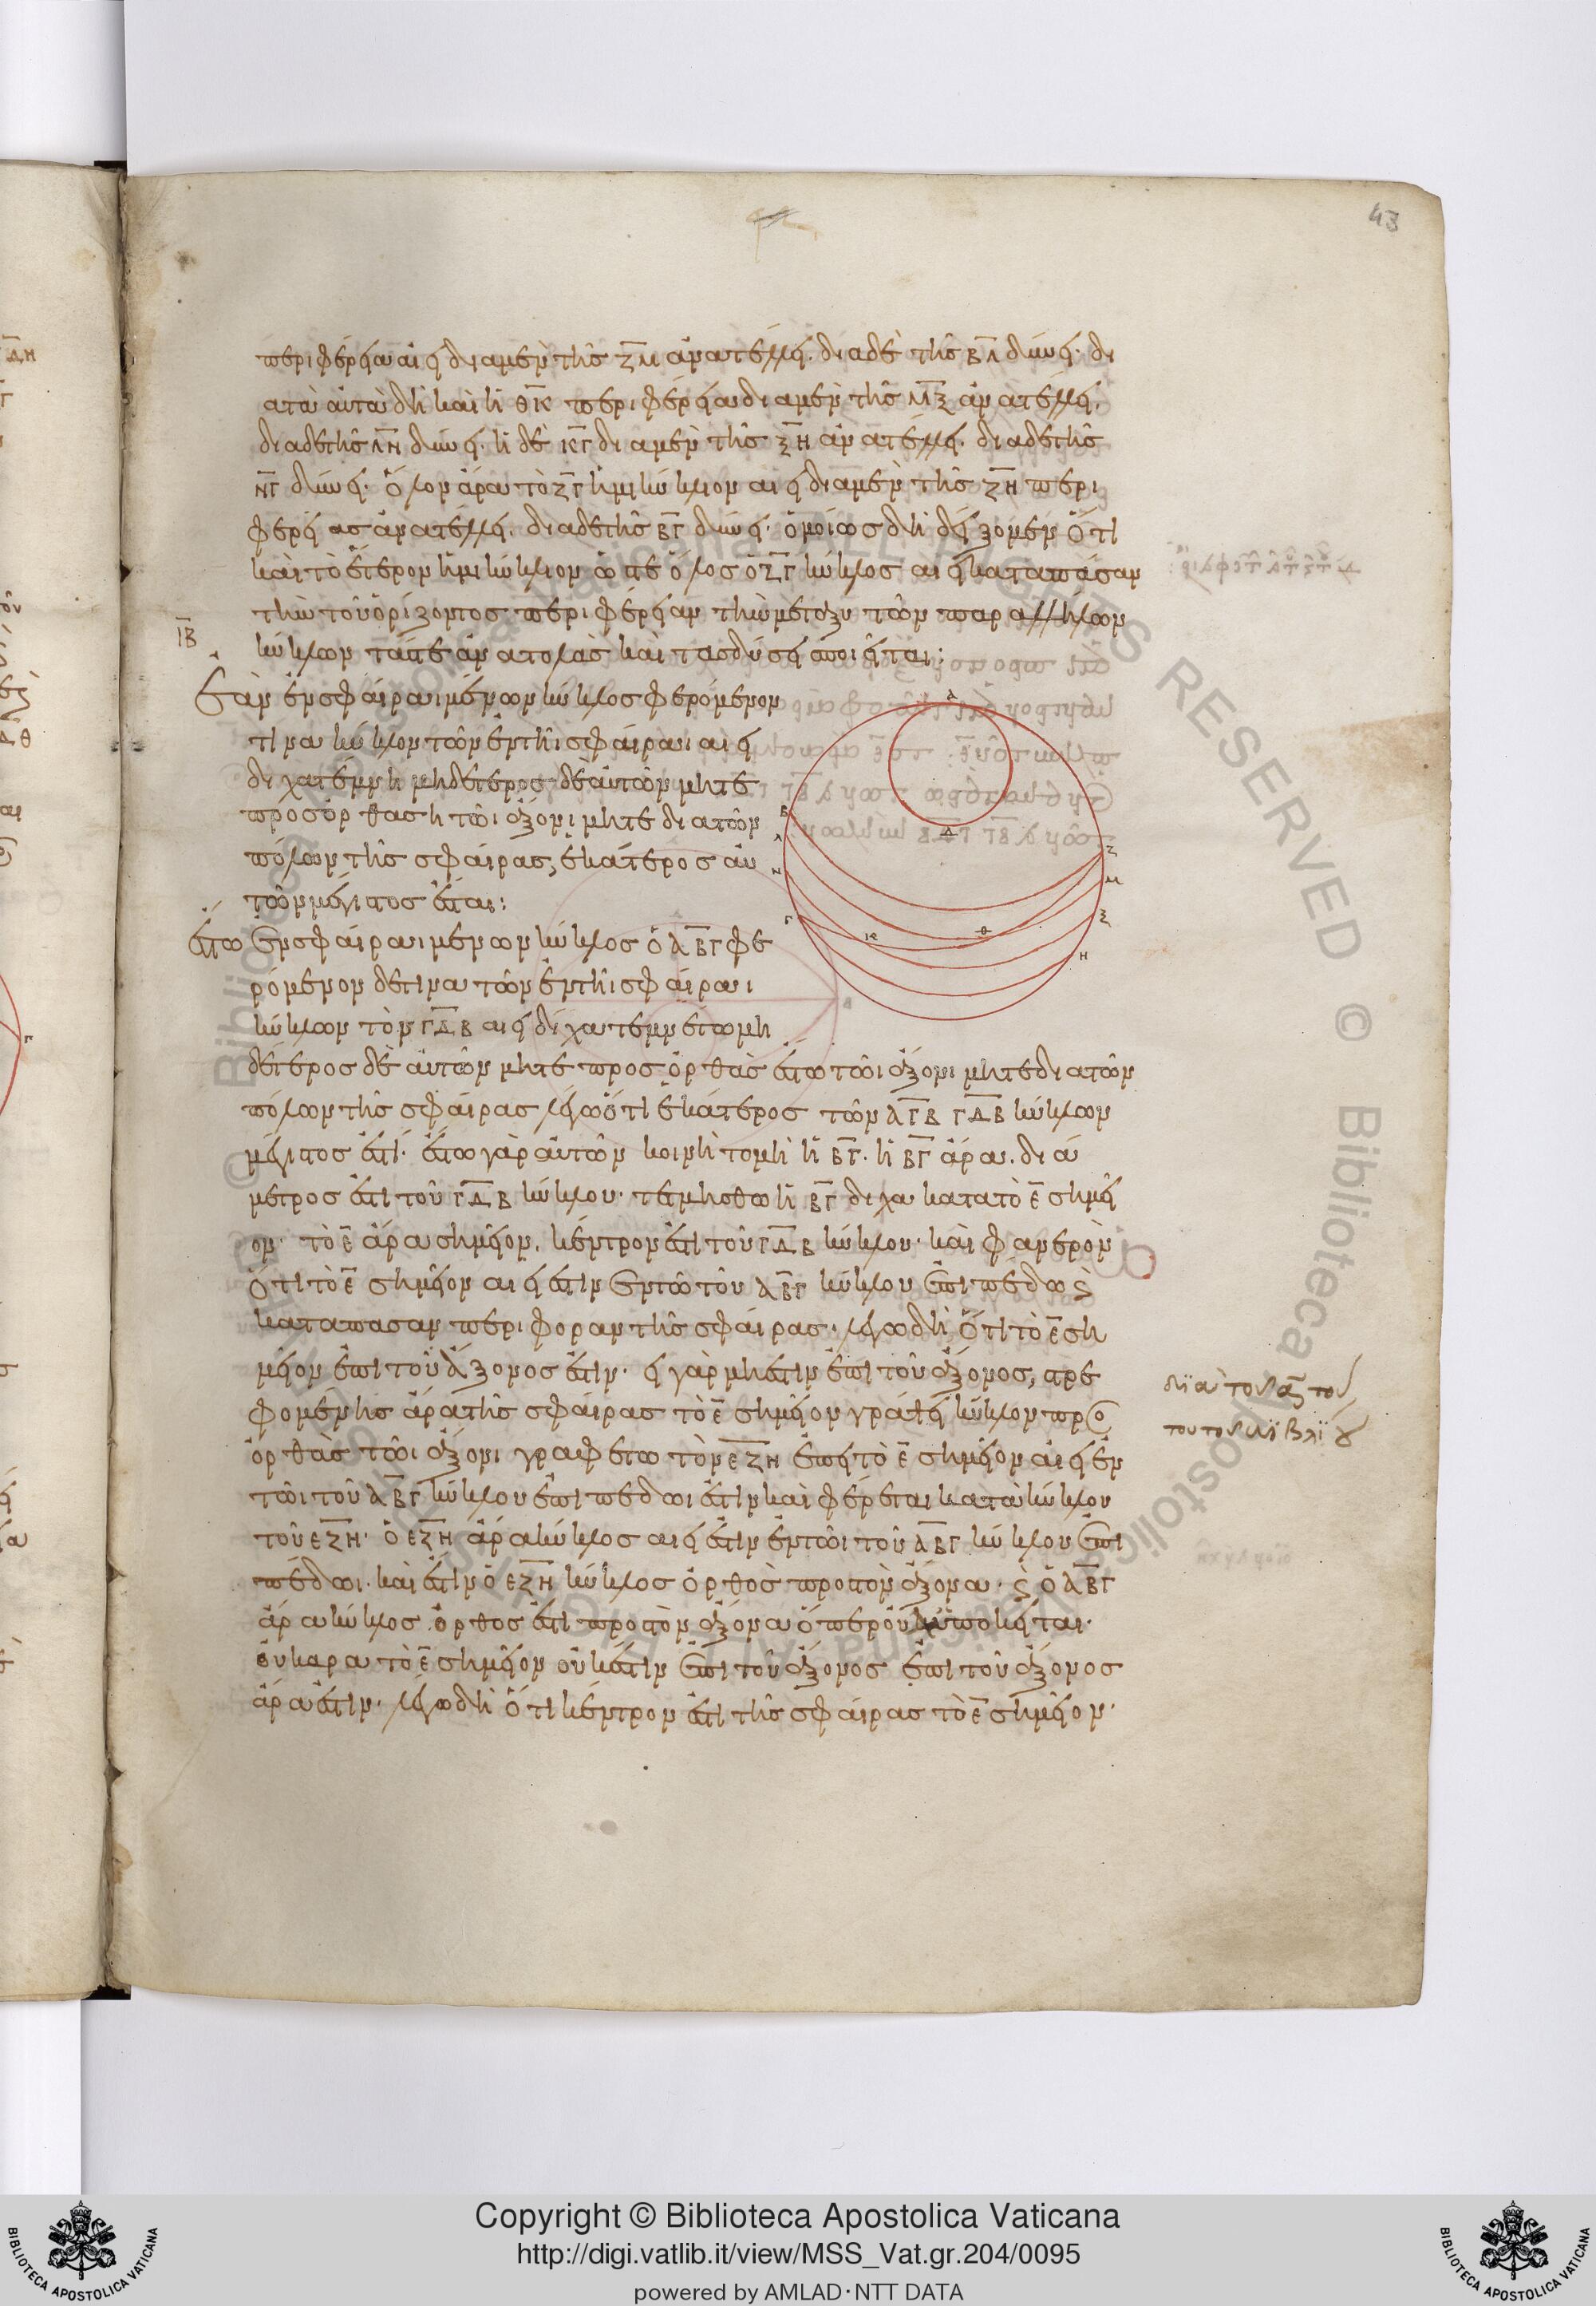 43
περιφέρεια αἰεὶ διὰ μὲν τῆς ΖΜ ἀνατέλλει. διὰ δὲ τῆς ΒΛ δύνει. δι
ὰ τὰ αὐτὰ δὴ καὶ ἡ ΘΚ περιφέρεια διὰ μὲν τῆς ΜΞ ἀνατέλλει.
διὰ δὲ τῆς ΛΝ δύνει. ἡ δὲ ΚΓ διὰ μὲν τῆς ΞΗ ἀνατέλλει. διὰ δὲ τῆς
ΝΓ δύνει. ὅλον ἄρα τὸ ΖΓ ἡμικύκλιον αἰεὶ διὰ μὲν τῆς ΖΗ περι
φερείας ἀνατέλλει. διὰ δὲ τῆς ΒΓ δύνει. ὁμοίως δὴ δείξομεν ὅτι
καὶ τὸ ἕτερον ἡμικύκλιον ὥστε ὅλος ὁ ΖΓ κύκλος αἰεὶ κατὰ πᾶσαν
τὴν τοῦ ὁρίζοντος περιφέρειαν τὴν μεταξὺ τῶν παραλλήλων
κύκλων τάς τε ἀνατολὰς καὶ τὰς δύσεις ποιεῖται:
ΙΒ
Ἐὰν ἐν σφαίραι μένων κύκλος φερόμενον
τινα κύκλον τῶν ἐν τῆι σφαίραι αἰεὶ
δίχα τέμνηι μηδέτερος δὲ αὐτῶν μήτε
πρὸς ὀρθὰς ἦι τῶι ἄξονι μήτε διὰ τῶν
πόλων τῆς σφαίρας, ἑκάτερος αὐ
τῶν μέγιστος ἔσται:
ἔστω ἐν σφαίραι μένων κύκλος ὁ ΑΒΓ φε
ρόμενον δέ τινα τῶν ἐν τῆι σφαίραι
κύκλων τὸν ΓΔΒ αἰεὶ δίχα τεμνέτω μη
δέτερος δὲ αὐτῶν μήτε πρὸς ὀρθὰς ἔστω τῶι ἄξονι μήτε διὰ τῶν
πόλων τῆς σφαίρας λέγω ὅτι ἑκάτερος τῶν ΑΓΒ ΓΔΒ κύκλων
μέγιστός ἐστι. ἔστω γὰρ αὐτῶν κοινὴ τομὴ ἡ ΒΓ. ἡ ΒΓ ἄρα. διά
μετρός ἐστι τοῦ ΓΔΒ κύκλου. τετμήσθω ἡ ΒΓ δίχα κατὰ τὸ Ε σημεῖ
ον. τὸ Ε ἄρα σημεῖον, κέντρον ἐστὶ τοῦ ΓΔΒ κύκλου. καὶ φανερὸν
ὅτι τὸ Ε σημεῖον αἰεί ἐστιν ἐν τῶ τοῦ ΑΒΓ κύκλου ἐπιπέδω καὶ
κατὰ πᾶσαν περιφορὰν τῆς σφαίρας. λέγω δὴ ὅτι τὸ Ε ση
μεῖον ἐπὶ τοῦ ἄξονός ἐστιν. εἰ γὰρ μή ἐστιν ἐπὶ τοῦ ἄξονος, στρε
φομένης ἄρα τῆς σφαίρας τὸ Ε σημεῖον γράψει κύκλον πρὸς
ὀρθὰς τῶι ἄξονι γραφέτω τὸν ΕΖΗ ἐπεὶ τὸ Ε σημεῖον αἰεὶ ἐν
τῶι τοῦ ΑΒΓ κύκλου ἐπιπέδωι ἐστὶν καὶ φέρεται κατὰ κύκλου
τοῦ ΕΖΗ. ὁ ΕΖΗ ἄρα κύκλος αἰεί ἐστιν ἐν τῶι τοῦ ΑΒΓ κύκλου ἐπι
πέδωι. καὶ ἔστιν ὁ ΕΖΗ κύκλος ὀρθὸς πρὸς τὸν ἄξονα. καὶ ὁ ΑΒΓ
ἄρα κύκλος ὀρθός ἐστι πρὸς τὸν ἄξονα ὅπερ οὐχ ὑπόκειται.
οὐκ ἄρα τὸ Ε σημεῖον οὐκ ἔστιν ἐπὶ τοῦ ἄξονος ἐπὶ τοῦ ἄξονος
ἄρα ἐστίν. λέγω δὴ ὅτι κέντρον ἐστὶ τῆς σφαίρας τὸ Ε σημεῖον.
Α
Β
Λ
Ν
Γ
Δ
Ζ
Μ
Ξ
Η
Κ
Θ
Copyright © Biblioteca Apostolica Vaticana
http://digi.vatlib.it/view/MSS_Vat.gr.204/0095
powered by AMLAD·NTT DATA
BIBLIOTECA APOSTOLICA VATICANA
BIBLIOTECA APOSTOLICA VATICANA